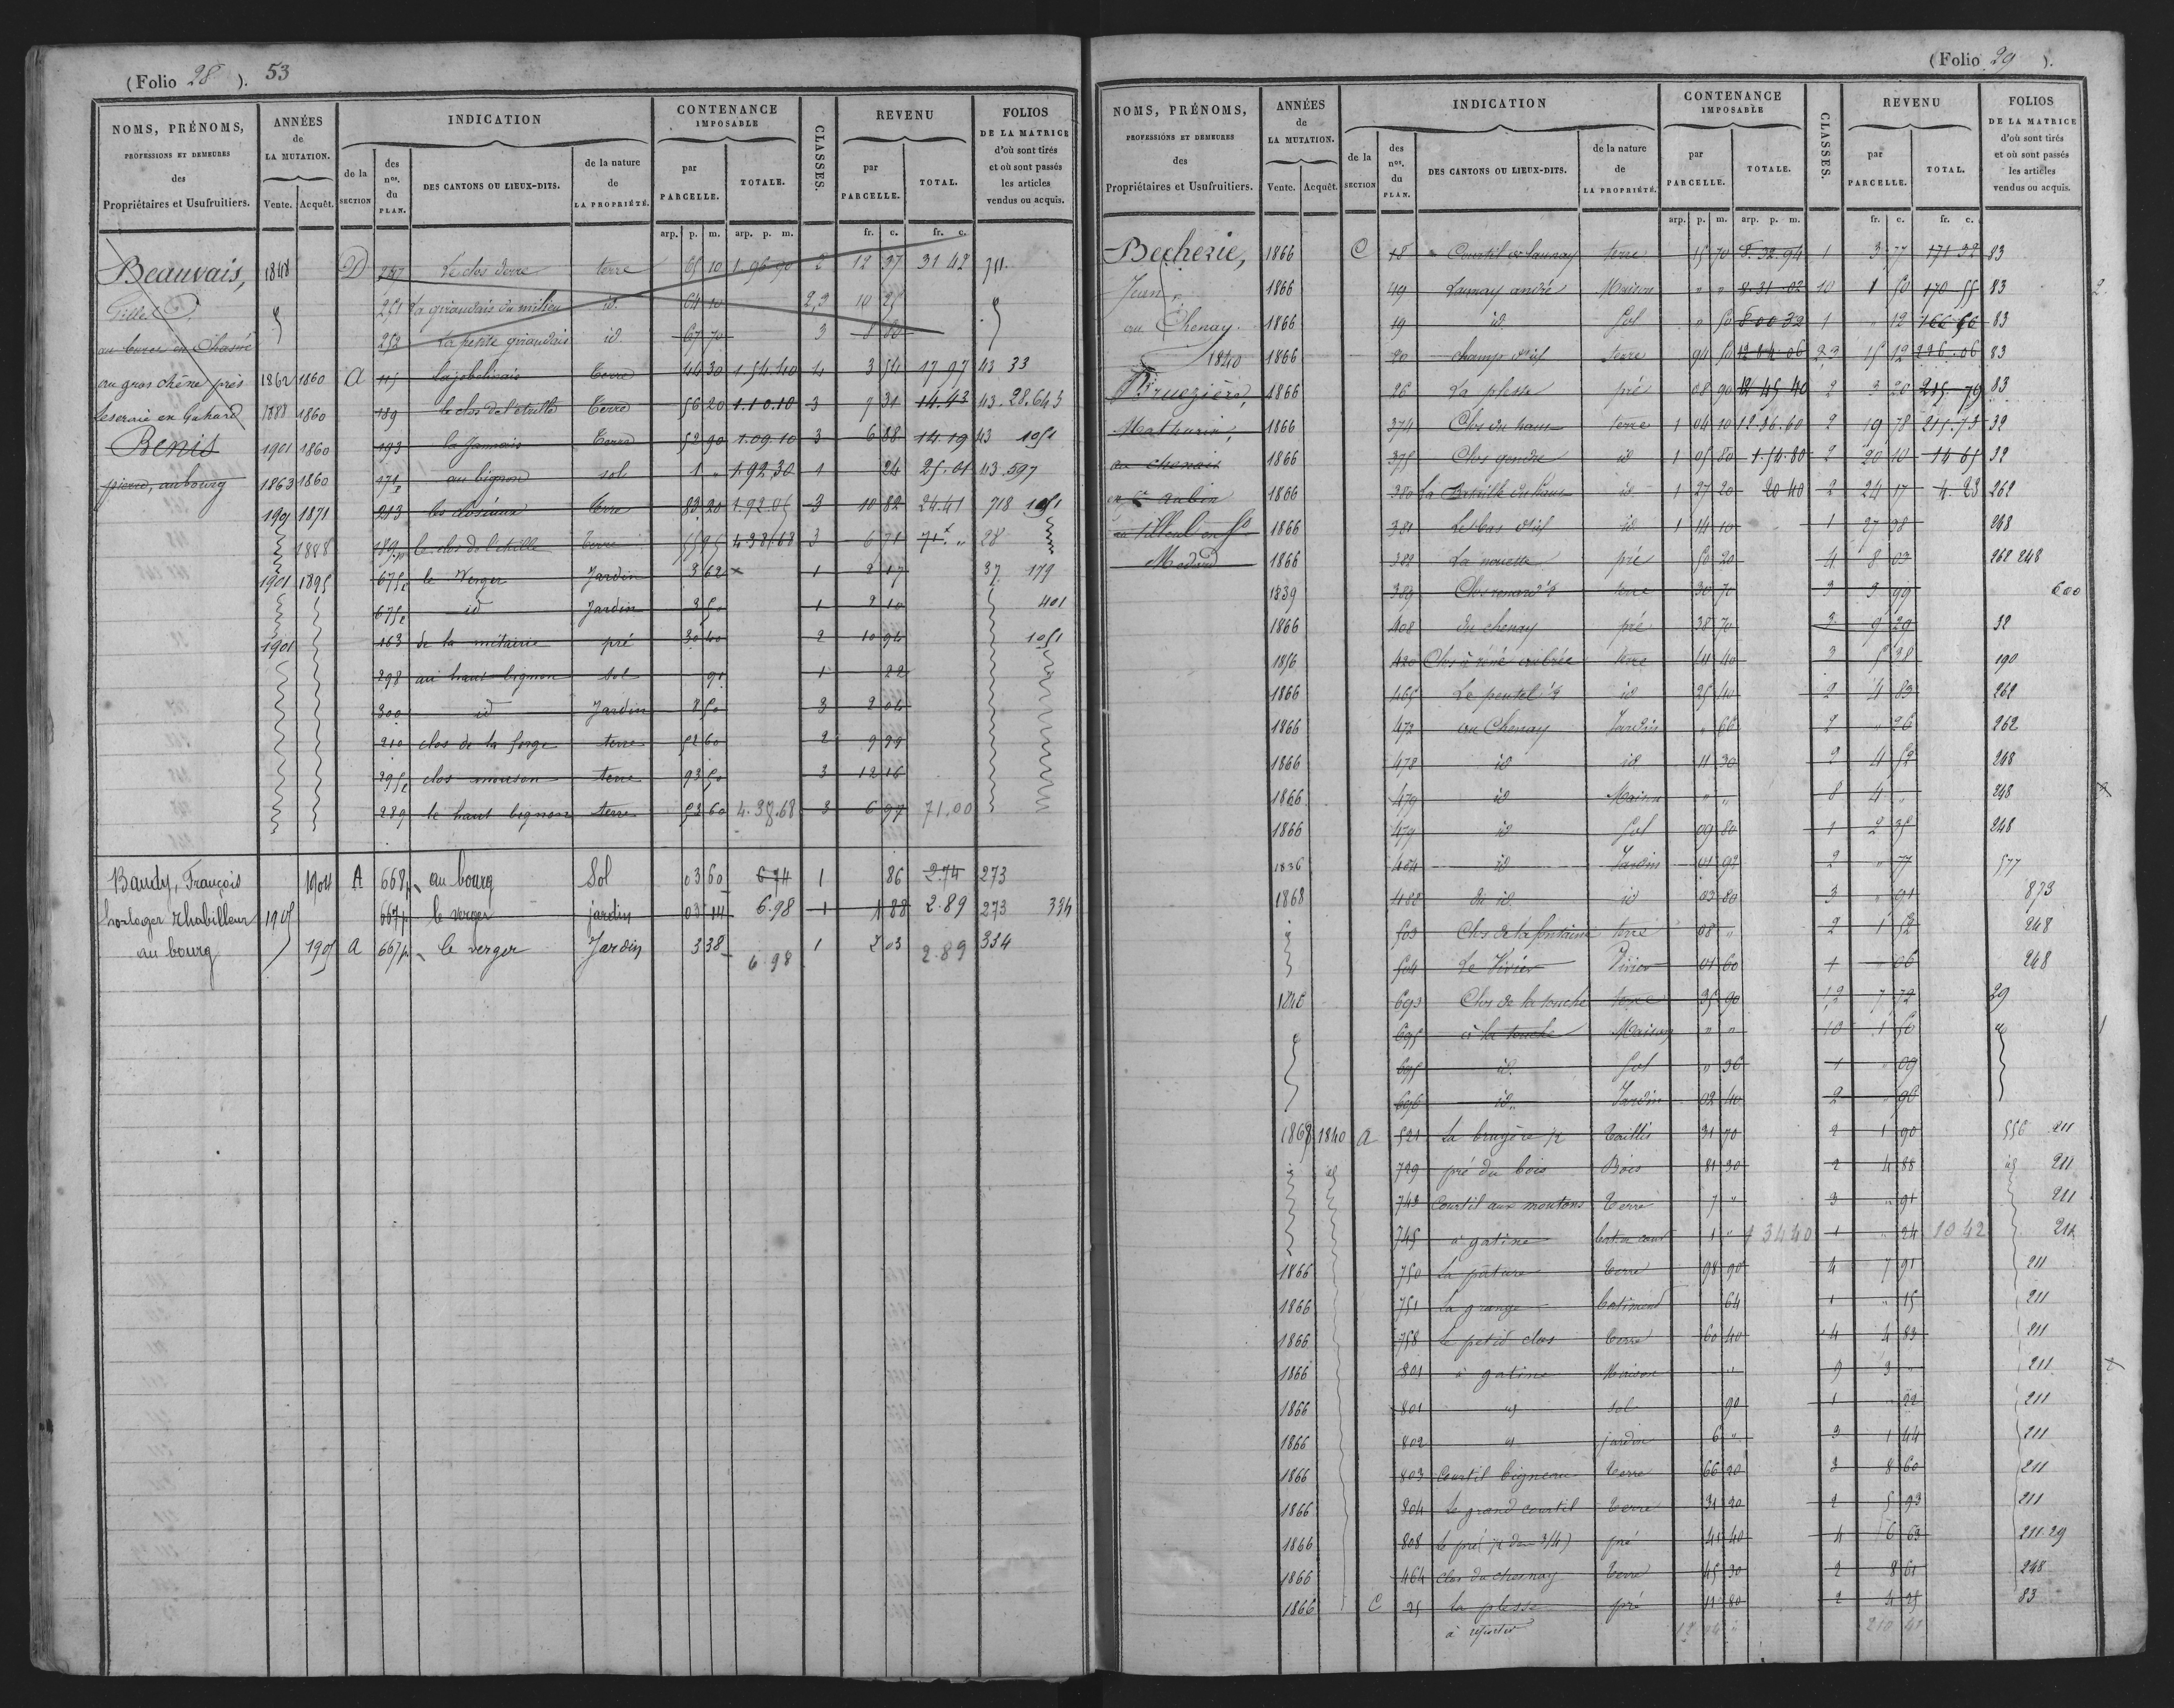 (Folio 28 ). 53
NOMS, PRÉNOMS,
PROFESSIONS ET DEMEURES
des
Propriétaires et Usufruitiers.
ANNÉES
de
LA MUTATION.
Vente. Acquêt.
INDICATION
de la
SECTION
des
nos.
du
PLAN.
DES CANTONS OU LIEUX-DITS.
de la nature
de
LA PROPRIÉTÉ.
CONTENANCE
IMPOSABLE
par
PARCELLE.
TOTALE.
CLASSES.
REVENU
par
PARCELLE.
TOTAL.
FOLIOS
DE LA MATRICE
d'où sont tirés
et où sont passés
les articles
vendus ou acquis.
arp. p. m. arp. p. m. fr. c. fr. c.
Beauvais, 1848 D Le clos terre 65 10 1 96 90 2 12 37 31 42 711.
Gilles 251 La giraudais du milieu id. 64 10 2,3 10 25
252 La petite giraudais id 67 70 3 8 80
au gros chêne près 1862 1860 A 115 Lajobelinais Terre 44 30 1.54.40 4 3 54 17 97 43 33
en Gahard 1888 1860 189 le clos de l'etuille Terre 56 20 1.10.10 3 7 31 14.43 43.28.643
Benis 1901 1860 193 la Jannais Terre 52 90 1.09.10 3 6 88 14.19 43 1051
pierre, au bourg 1863 1860 171 au bignon sol 1 " 1.92.30 1 24 25.01 43.597
1901 1871 213 les closeaux Terre 83 20 1.92.06 3 10 82 24.41 718 1051
1888 189p le clos de l'etuille Terre 55 95 4.38.68 3 6 71 71. " 28
1901 1895 675p le Verger Jardin 3 62 1 2 17 37 179
675p id Jardin 3 50 1 2 10 401
1901 163 de la métairie pré 30 40 2 10 94 1051
298 au haut bignon sol 91 1 22
300 id Jardin 8 50 3 2 04
210 clos de la forge terre 52 60 2 9 99
295p clos mouson terre 93 50 3 12 16
289 le haut bignon terre 53 60 4.38.68 3 6 97 71.00
Baudy, François 1904 A 668p au bourg Sol 03 60 6 74 1 86 2.74 273
horloger rhabilleur 1905 667p le verger jardin 03 14 6.98 1 1 88 2.89 273 334
au bourg 1905 A 667p le verger Jardin 3 38 6.98 1 2 03 2.89 334
(Folio 29 ).
NOMS, PRÉNOMS,
PROFESSIONS ET DEMEURES
des
Propriétaires et Usufruitiers.
ANNÉES
de
LA MUTATION.
Vente. Acquêt.
INDICATION
de la
SECTION
des
nos.
du
PLAN.
DES CANTONS OU LIEUX-DITS.
de la nature
de
LA PROPRIÉTÉ.
CONTENANCE
IMPOSABLE
par
PARCELLE.
TOTALE.
CLASSES.
REVENU
par
PARCELLE.
TOTAL.
FOLIOS
DE LA MATRICE
d'où sont tirés
et où sont passés
les articles
vendus ou acquis.
arp. p. m. arp. p. m. fr. c. fr. c.
Becherie, 1866 C 18 terre 15 70 8.32.94 1 3 77 171 32 83
Jean 1866 49 Maison " " 8.31.02 10 1 50 170 55 83 2
au Chenay. 1866 19 id. Sol " 50 8 00 32 1 " 12 166 66 83
1840 1866 20 champ terre 94 50 2 3 15 12 83
1866 26 La plesse pré 08 90 12 45 40 2 3 20 215.79 83
Mathurin, 1866 374 Clos du haut terre 1 04 10 12 36.60 2 19 78 215.73 32
au chenais 1866 375 Clos gendre id 1 05 80 1.54.80 2 20 10 14 65 32
1866 380 id 1 27 20 20 40 2 24 17 4.23 262
1866 381 id 1 14 10 1 27 38 268
Médard 1866 388 La nouette pré 50 20 4 8 03 268 248
1839 389 Clos renard terre 30 70 3 3 99 600
1866 408 du chenay pré 38 70 3 9 29 32
1856 420 Clos terre 41 40 3 5 38 190
1866 465 Le id 25 40 2 4 83 262
1866 472 au Chenay Jardin " 66 2 " 26 262
1866 478 id id 11 30 2 4 52 248
1866 479 id Maison " " 8 4 " 248
1866 479 id Sol 09 80 1 2 35 248
1836 484 id Jardin 01 92 2 " 77 577
1868 482 id id 03 80 3 " 91 873
503 Clos de la fontaine terre 08 " 2 1 52 248
504 Le Vivier Vivier 01 60 1 " 06 248
1846 693 Clos de la touche terre 35 90 1,2 7 72 29
695 à la touche Maison " " 10 1 50
695 id. Sol " 36 1 " 09
696 id. Jardin 02 40 2 " 96
1868 1840 A 521 La bruyère Taillis 31 70 2 1 90 556 211
729 pré du bois Bois 81 30 2 4 88 211
743 Courtil aux moutons Terre 7 " 3 " 91 211
745 à gatine bat. et cour 1 " 1 34 40 1 " 24 10 42 211
1866 750 La pature Terre 98 90 4 7 91 211
1866 751 La grange batiment 64 1 " 15 211
1866 758 Le petit clos Terre 60 40 4 4 83 211
1866 801 à gatine Maison " 9 3 " 211
1866 801 id sol 90 1 " 22 211
1866 802 id jardin 6 " 3 1 44 211
1866 803 Courtil bigneau Terre 66 20 3 8 60 211
1866 804 Le grand courtil Terre 31 20 2 5 93 211
1866 808 Le pré pré 41 40 4 6 63 211 29
1866 464 clos du chesnay Terre 45 30 2 8 61 248
1866 C 25 La plesse pré 11 80 2 4 25 83
à reporter